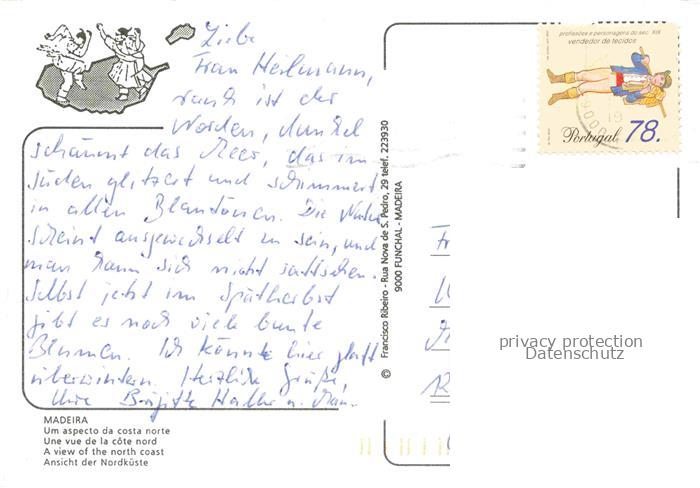 Liebe
Frau Heilmann,
rauh ist der
Norden, dunkel
schäumt das Meer, das im
Süden glitzert und schimmert
in allen Blautönen. Die Natur
scheint ausgewechselt zu sein, und
man kann sich nicht sattsehen.
Selbst jetzt im Spätherbst
gibt es noch viele bunte
Blumen. Ich könnte hier glatt
überwintern. Herzliche Grüße,
Ihre Brigitte Halbe u.
MADEIRA
Um aspecto da costa norte
Une vue de la côte nord
A view of the north coast
Ansicht der Nordküste
© Francisco Ribeiro - Rua Nova de S. Pedro, 29 telef. 223930
9000 FUNCHAL - MADEIRA
profissões e personagens do sec. XIX
vendedor de tecidos
Portugal 78.
privacy protection
Datenschutz